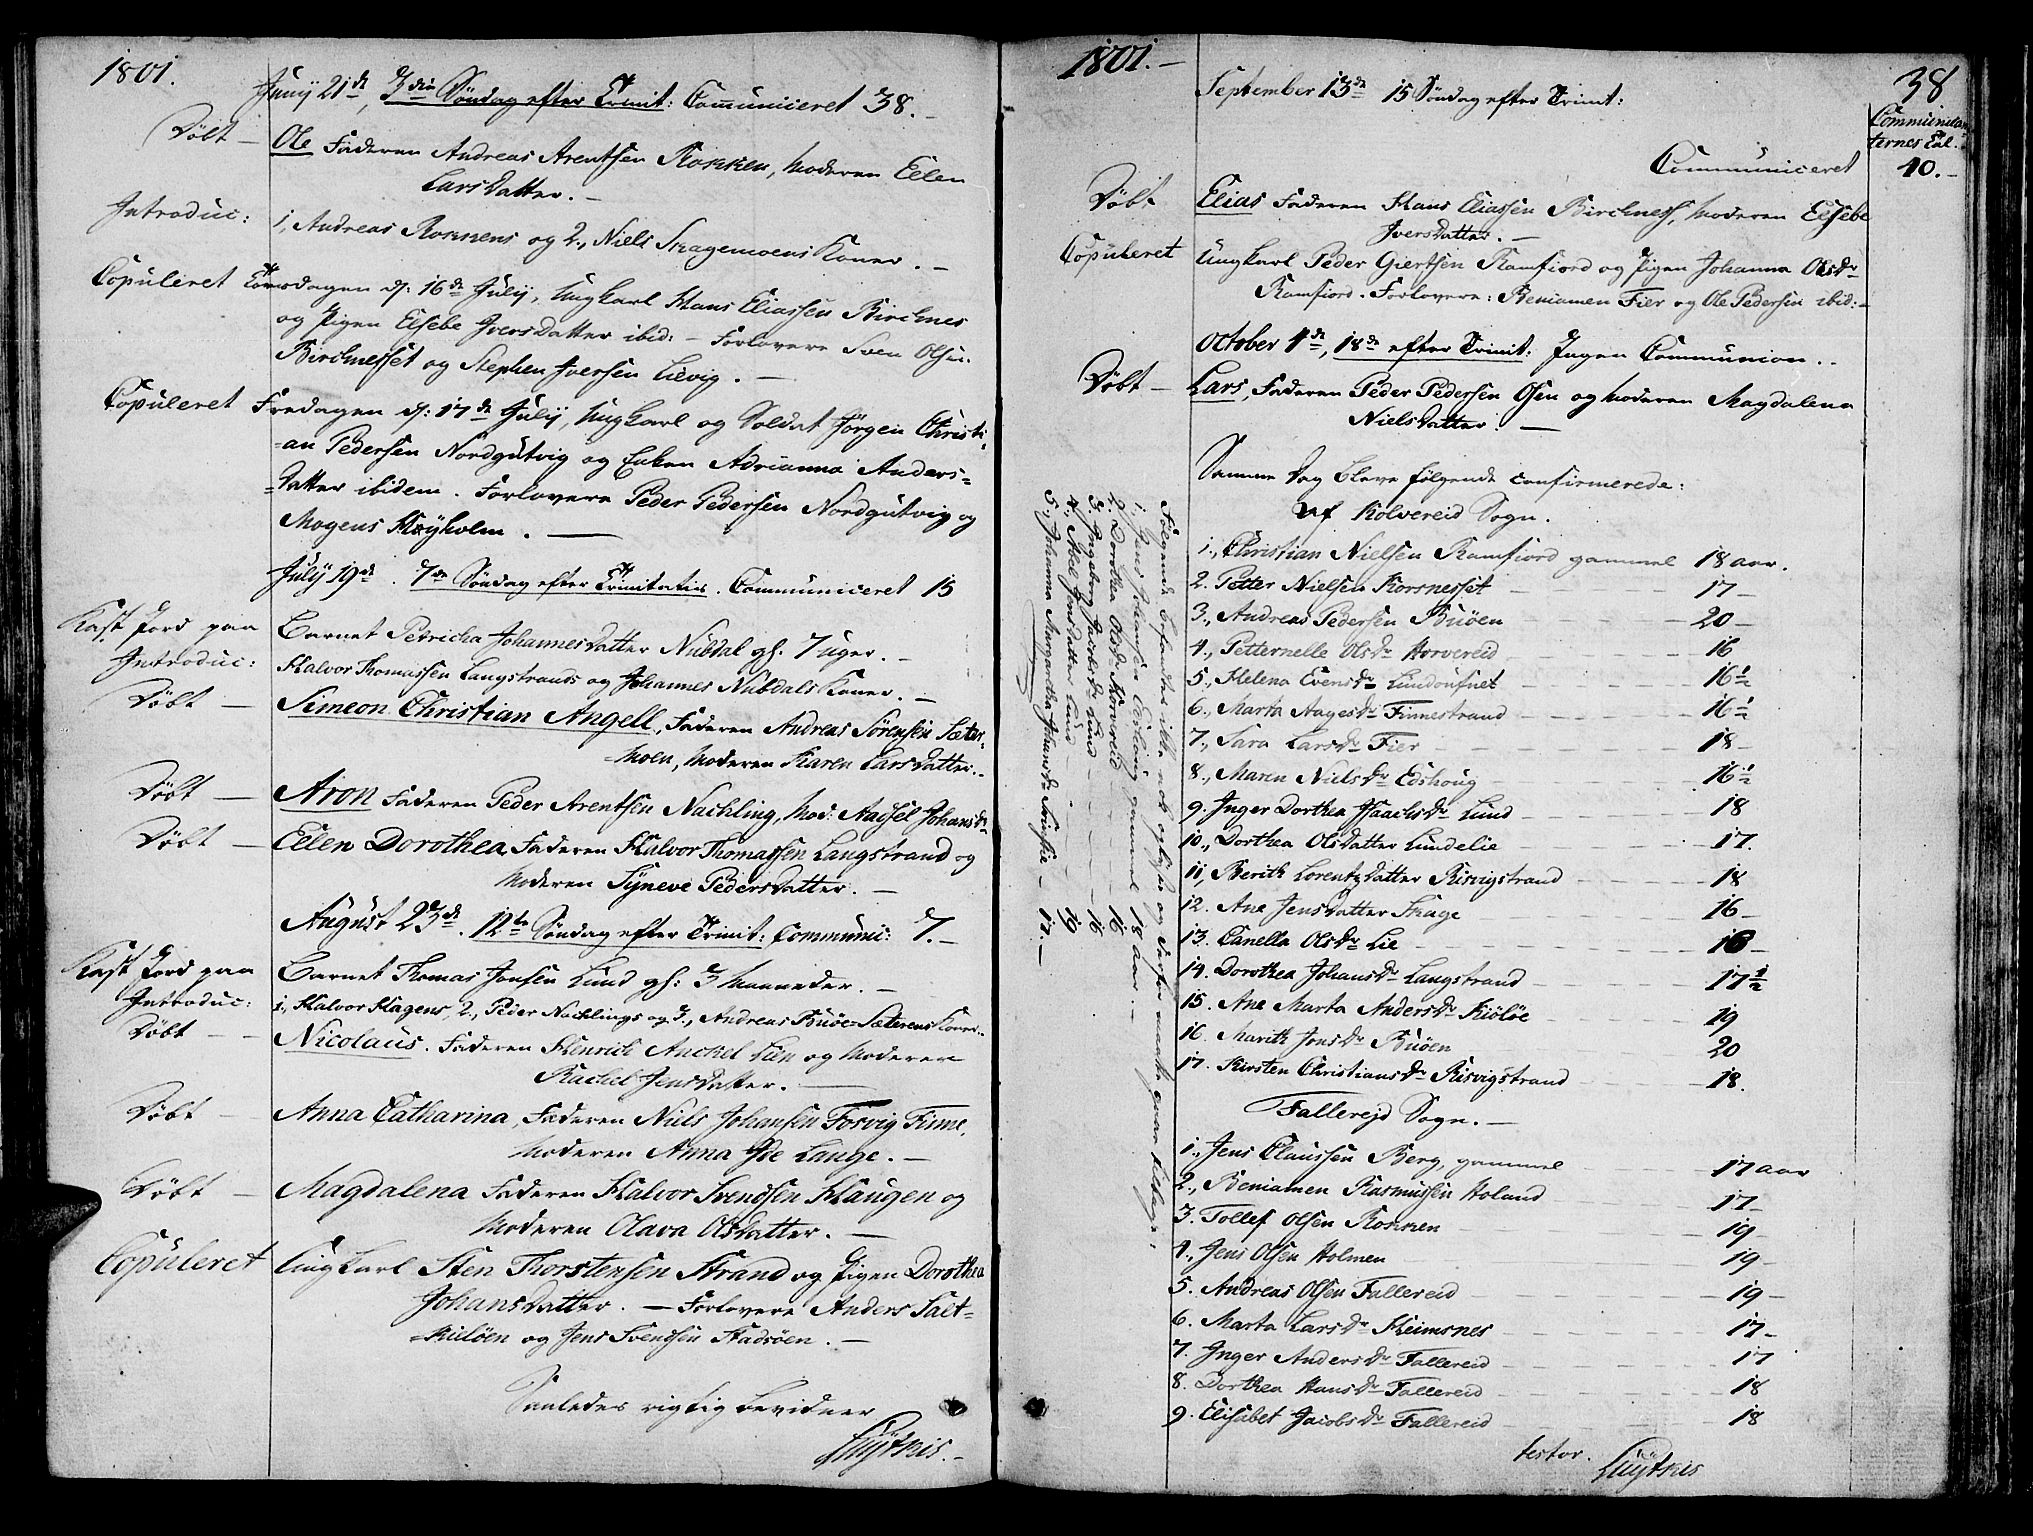 1801.
Junij 21de, 3die Søndag efter Trinit: Communiceret 38.
Døbt — Ole Faderen Andreas Arentsen Rokken, Moderen Ellen
Larsdatter. —
Introduc: 1, Andreas Rokkens og 2., Niels Skagemoens Koner. —
Copuleret Torsdagen d: 16de Julij, Ungkarl Hans Eliassen Birchnes
og Pigen Elsebe Iversdatter ibid: — Forlovere Sven Olsen
Birchnesset og Stephen Iversen Lievig. —
Copuleret Fredagen d: 17de Julij, Ungkarl og Soldat Jørgen Christi-
=an Pedersen Nordgutvig og Enken Adrianna Anders-
=datter ibidem. Forlovere Peder Pedersen Nordgutvig og
Mogens Høyholm. —
Julij 19de. 7de Søndag efter Trinitatis. Communiceret 15
Kast Jord paa Barnet Petricha Johannesdatter Nubdal gl: 7 uger. —
Introduc: Halvor Thomassen Langstrands og Johannes Nubdals Koner. —
Døbt — Simeon Christian Angell, Faderen Andreas Sørensen Sæter-
=moen, Moderen Karen Larsdatter. —
Døbt — Aron Faderen Peder Arentsen Nachling, Mod: Aadsel Johansdr
Døbt — Ellen Dorothea Faderen Halvor Thomassen Langstrand og
Moderen Synneve Pedersdatter. —
August 23de. 12te Søndag efter Trinit: Communi: 7. —
Kast Jord paa Barnet Thomas Jonsen Lund gl: 3 Maaneder. —
Introduc: 1, Halvor Hagens, 2., Peder Nachlings og 3., Andreas Buøe-Sæterens Koner. —
Døbt — Nicolaus. Faderen Henrich Anckel Lien og Moderen
Rachel Jensdatter. —
Døbt — Anna Catharina, Faderen Niels Johansen Fosvig Finne,
Moderen Anna Ide Lange. —
Døbt — Magdalena Faderen Halvor Svendsen Haugen og
Moderen Olava Olsdatter. —
Copuleret Ungkarl Sten Thorstensen Strand og Pigen Dorothea
Johansdatter. — Forlovere Anders Salt-
=kieløen og Jens Svendsen Stadsøen. —
Saaledes rigtig bevidner
Luytkis. —
1801. —
38
September 13de 15 Søndag efter Trinit:
Communican-
ternes Tal.
Communiceret 40. —
Døbt Elias Faderen Hans Eliassen Birchness, Moderen Elsebe
Iversdatter. —
Copuleret Ungkarl Peder Giertsen Ramfiord og Pigen Johanna Olsdr
Ramfiord. Forlovere: Beniamen Fier og Ole Pedersen ibid: —
October 4de, 18de efter Trinit: Ingen Communion. —
Døbt — Lars, Faderen Peder Pedersen Osen og Moderen Magdalena
Nielsdatter. —
Samme Dag bleve følgende confirmerede:
Af Kolvereid Sogn.
1., Christian Nielsen Ramfiord gammel 18 aar.
2. Petter Nielsen Horsnesset 17 —
3., Andreas Pedersen Buøen 20 —
4., Petternelle Olsdr Horvereid 16
5., Helena Evensdr Lundousnet 16½
6., Marta Aagesdr Finnestrand 16½
7., Sara Larsdr Fier 18 —
8., Maren Nielsdr Edshoug 16½
9. Inger Dorthea Isaachsdr Lund 18
10., Dorthea Olsdatter Lundelie 17.
11, Berith Lorentzdatter Risvigstrand 18
12. Ane Jensdatter Skage 16 —
13. Canella Olsdr Lie 16 —
14. Dorothea Johansdr Langstrand 17½
15. Ane Marta Andersdr Kisløe 19
16. Marith Jonsdr Buøen 20
17. Kirsten Christiansdr Risvigstrand 18.
Følgende befandtes ikke nok oplyste og derfor maatte giaae tilbage:
1. Jens Johansen Eidshoug gammel 18 aar. —
2. Dorthea Olsdr Horvereid 16
3. Ingeborg Jacobsdr Lund 16
4., Abel Jonsdatter Lund 19
5., Johanna Margaretha Johansdr 17. —
Fallereid Sogn. —
1., Jens Claussen Berg, gammel 17 aar
2., Beniamen Rasmussen Holand 17 —
3. Tollef Olsen Rokken 19 —
4., Jens Olsen Holmen 19 —
5. Andreas Olsen Fallereid 19 —
6. Marta Larsdr Heimsnes 17 —
7. Inger Andersdr Fallereid 17
8. Dorthea Hansdr Fallereid 18
9. Elisabet Jacobsdr Fallereid 18
testor. Luytkis